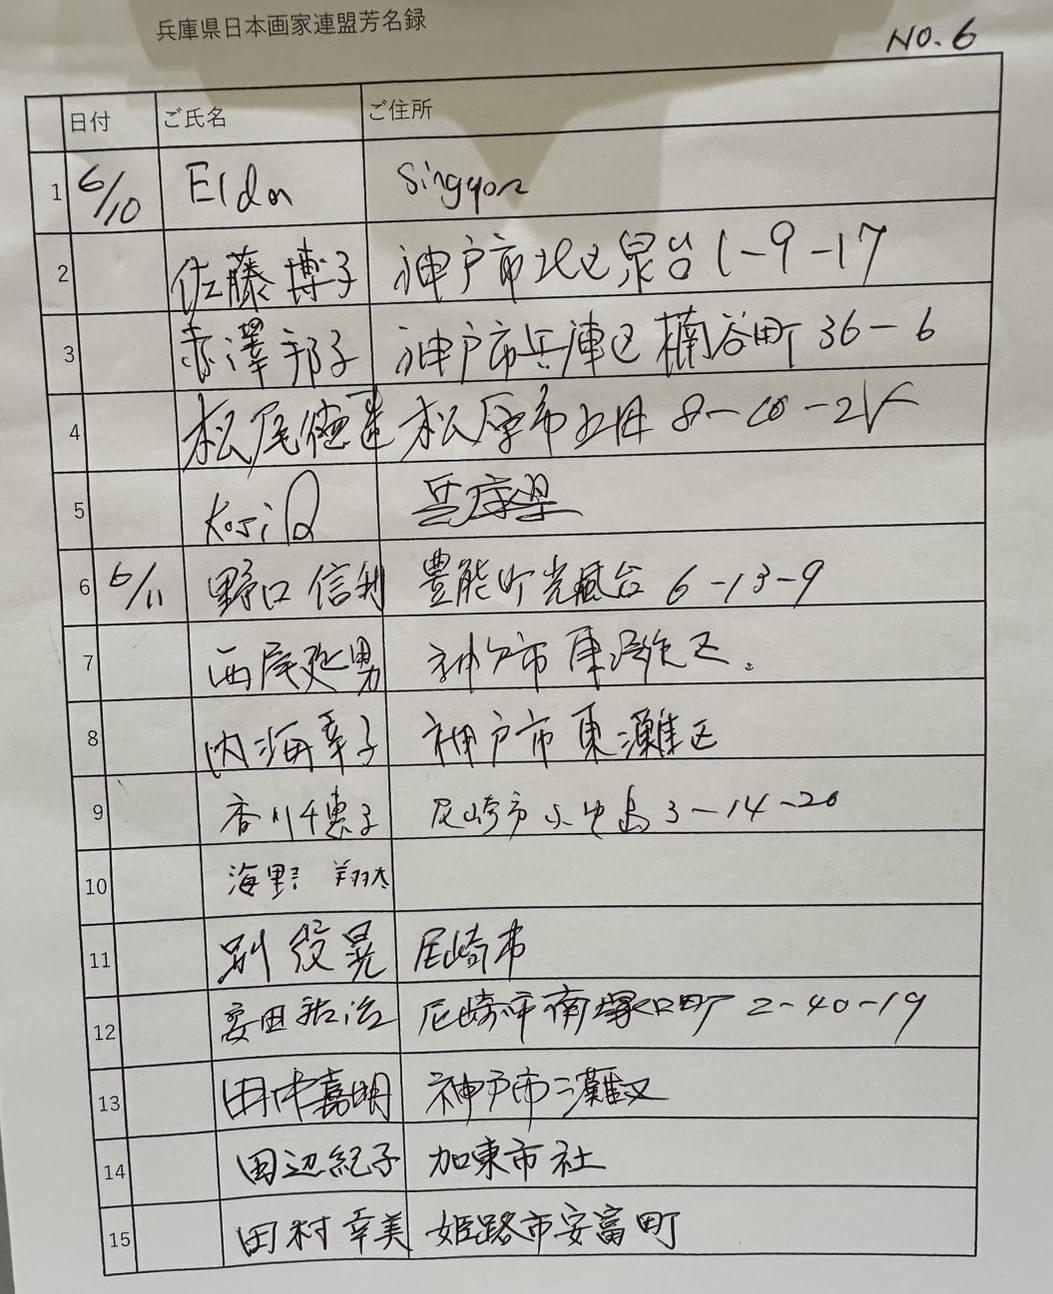 兵庫県日本画家連盟芳名録
NO. 6
日付 ご氏名 ご住所
1 6/10
2 佐藤 博子 神戸市北区泉台 1-9-17
3 赤澤 邦子 神戸市兵庫区楠谷町 36-6
4 松尾 松原市 8-10-2
5 Koji 兵庫県
6 6/11 野口 信利 豊能町光風台 6-13-9
7 西尾延男 神戸市東灘区.
8 内海幸子 神戸市東灘区
9 香川千恵子 尼崎市 3-14-20
10 海野 翔太
11 別役晃 尼崎市
12 安田 治 尼崎市南塚口町 2-40-19
13 田中嘉明 神戸市灘区
14 田辺紀子 加東市社
15 田村幸美 姫路市安富町